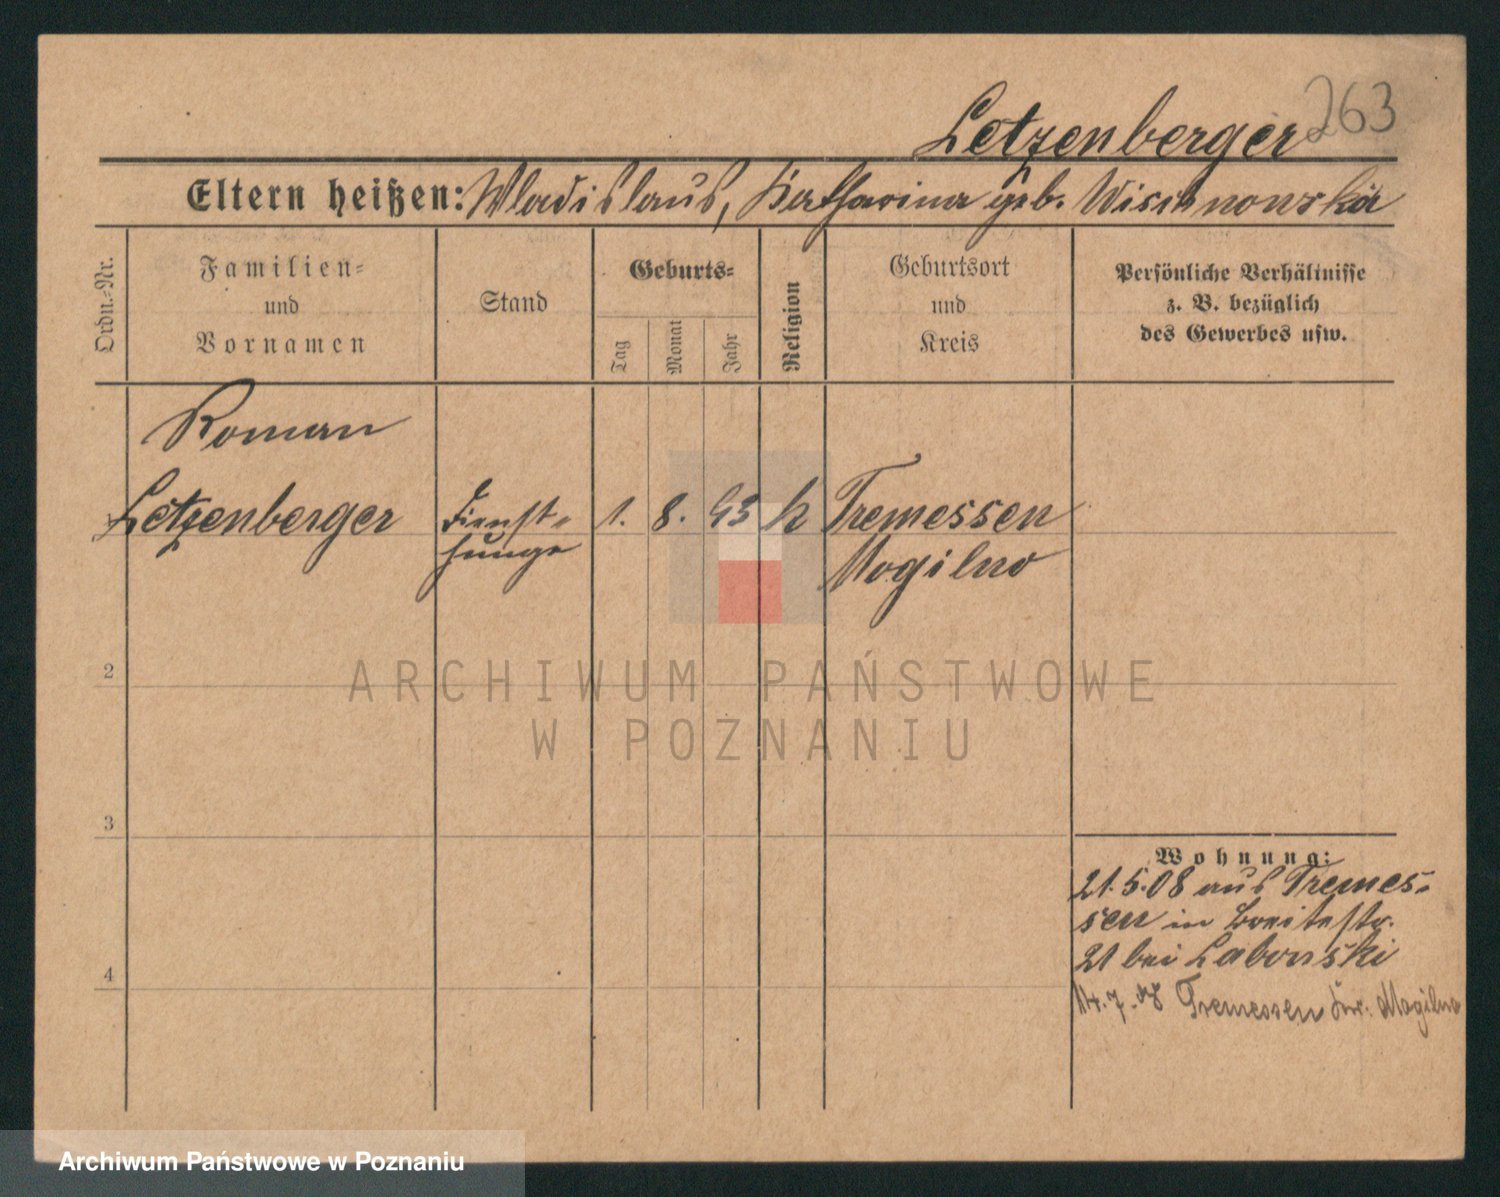 Letzenberger 263
Eltern heißen: Wladislaus, Katharina geb. Wischnowska
Ordn.-Nr.
Familien-
und
Vornamen
Stand
Geburts-
Tag
Monat
Jahr
Religion
Geburtsort
und
Kreis
Persönliche Verhältnisse
z. B. bezüglich
des Gewerbes usw.
Roman
Letzenberger Dienst- 1. 8. 93 k Tremessen
junge Mogilno
2
3
4
Wohnung:
21.5.08 aus Tremes-
sen in Breitestr.
21 bei Labonski
14.7.08 Tremessen Kr. Mogilno
ARCHIWUM PAŃSTWOWE
W POZNANIU
Archiwum Państwowe w Poznaniu